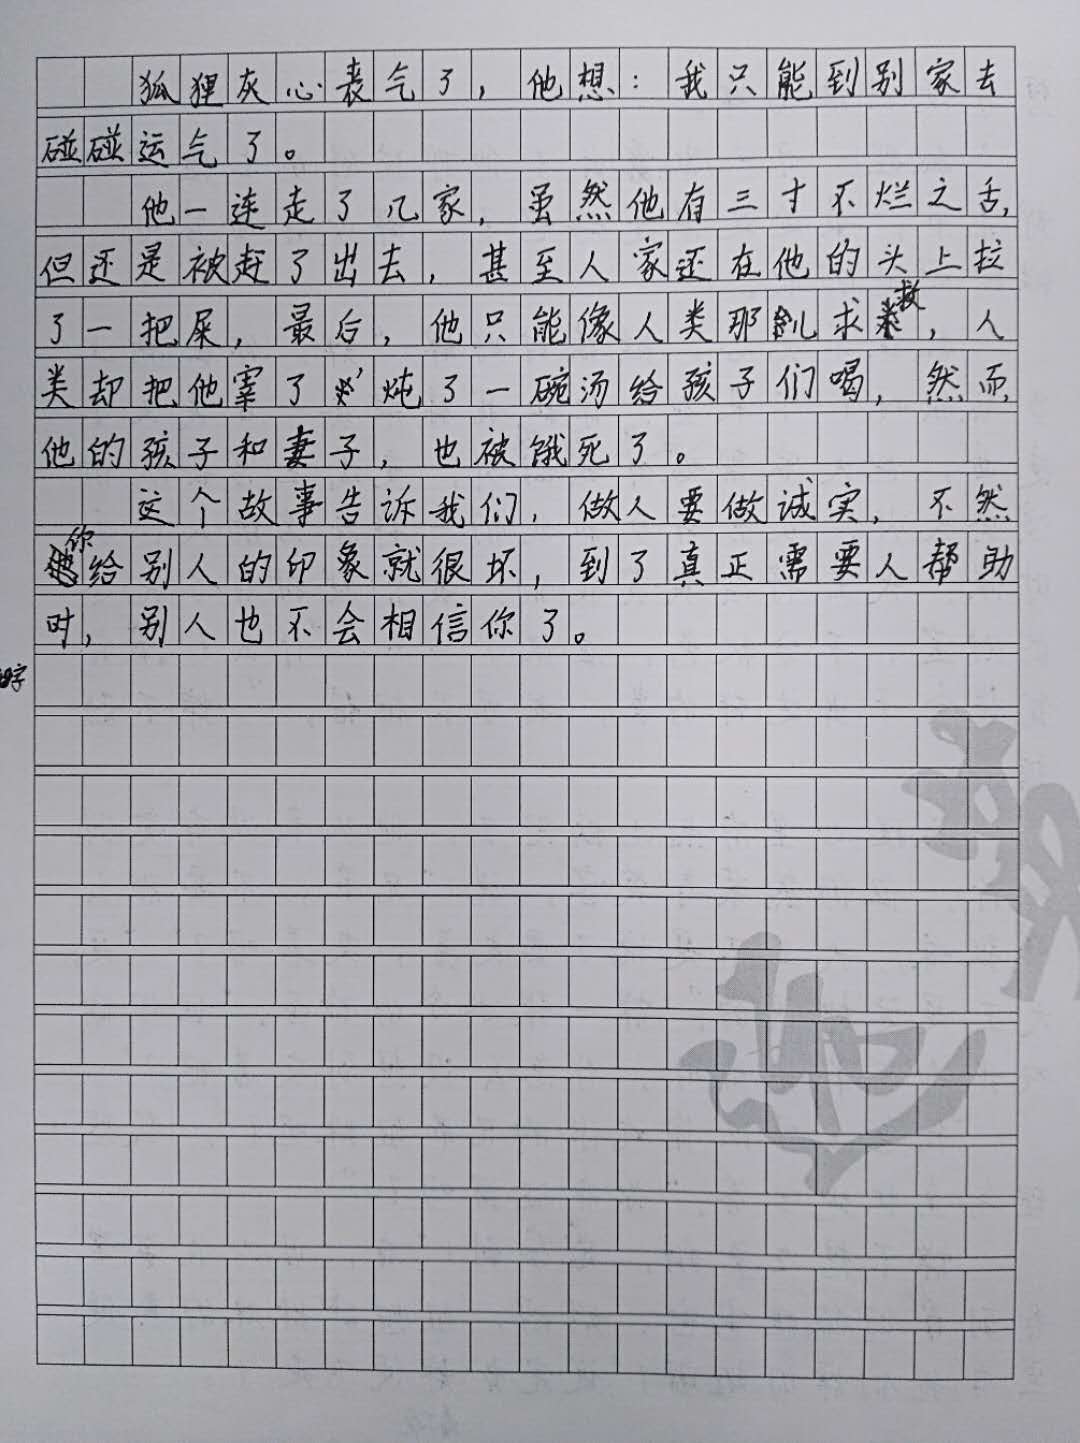 狐狸灰心丧气了，他想：我只能到别家去
碰碰运气了。
他一连走了几家，虽然他有三寸不烂之舌，
但还是被赶了出去，甚至人家还在他的头上拉
了一把屎，最后，他只能像人类那儿求救，人
类却把他宰了，炖了一碗汤给孩子们喝，然而，
他的孩子和妻子，也被饿死了。
这个故事告诉我们，做人要做诚实，不然
你给别人的印象就很坏，到了真正需要人帮助
时，别人也不会相信你了。
字